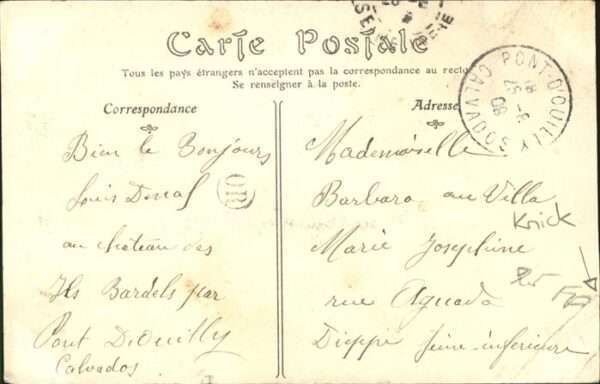 Carte Postale
Tous les pays étrangers n'acceptent pas la correspondance au recto
Se renseigner à la poste.
Correspondance
Adresse
PONT-D'OUILLY CALVADOS
25 - 3
08
OR
Bien le Bonjours
Louis
au château des
Ils Bardels par
Pont D'Ouilly
Calvados
Mademoiselle
Barbara au Villa
Knick
Marie Josephine
rue Aguado
Dieppe Seine-inferieure